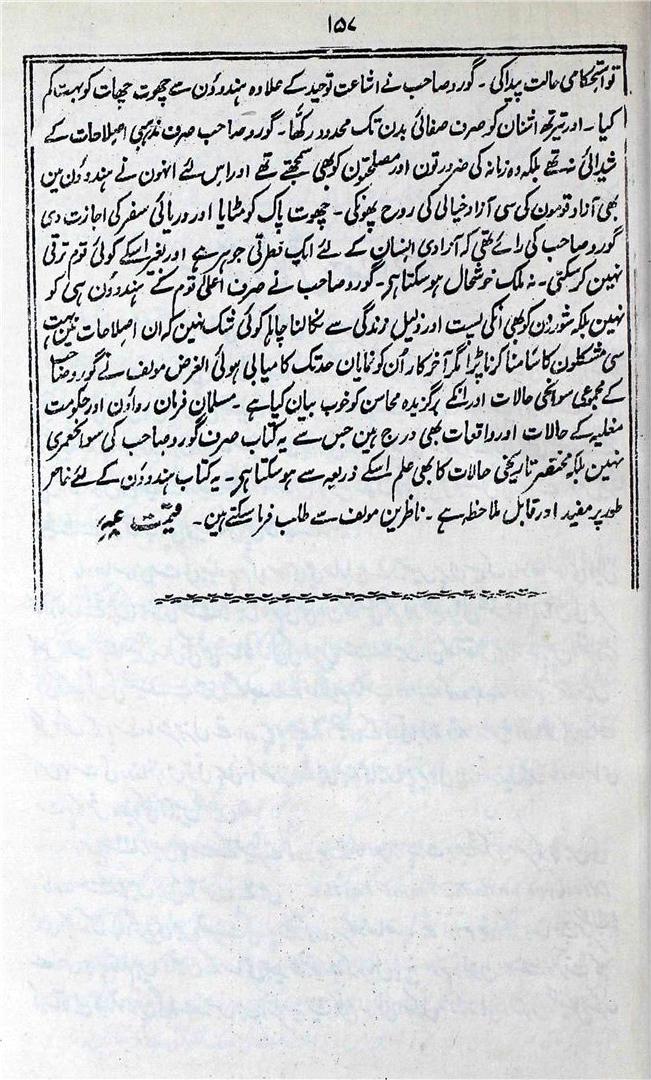 ۱۵۷
تو استحکامی حالت پیدا کی ۔ گورو صاحب نے اشاعت توحید کے علاوہ ہندوؤن سے چھوت چھات کو بہت کم
کیا ۔ اور تیرتھ اشنان کو صرف صفائی بدن تک محدود رکھا ۔ گورو صاحب صرف مذہبی اصلاحات کے
شیدائی نہ تھے بلکہ وہ زمانہ کی ضرورتون اور مصلحتون کو بھی سمجھتے تھے اور اس لئے انہون نے ہندوؤن مین
بھی آزاد قومون کی سی آزاد خیالی کی روح پھونکی ۔ چھوت پاک کو مٹایا اور دریائی سفر کی اجازت دی
گورو صاحب کی رائے تھی کہ آزادی انسان کے لئے ایک فطرتی جوہر ہے اور بغیر اسکے کوئی قوم ترقی
نہین کر سکتی ۔ نہ ملک خوشحال ہو سکتا ہر ۔ گورو صاحب نے صرف اعلیٰ قوم کے ہندوؤن ہی کو
نہین بلکہ شودرون کو بھی انکی پست اور ذلیل زندگی سے نکالنا چاہا کوئی شک نہین کہ ان اصلاحات مین بہت
سی مشکلون کا سامنا کرنا پڑا مگر آخر کار اُن کو نمایان حد تک کامیابی ہوئی الغرض مولف نے گورو صاحب
کے مجموعی سوانحی حالات اور انکے برگزیدہ محاسن کو خوب بیان کیا ہے ۔ مسلمان فرمان رواؤن اور حکومت
مغلیہ کے حالات اور واقعات بھی درج ہین جس سے یہ کتاب صرف گورو صاحب کی سوانحعمری
نہین بلکہ مختصر تاریخی حالات کا بھی علم اسکے ذریعہ سے ہو سکتا ہر ۔ یہ کتاب ہندوؤن کے لئے خاصر
طور پر مفید اور قابل ملاحظہ ہے ۔ ناظرین مولف سے طلب فرما سکتے ہین ۔ قیمت